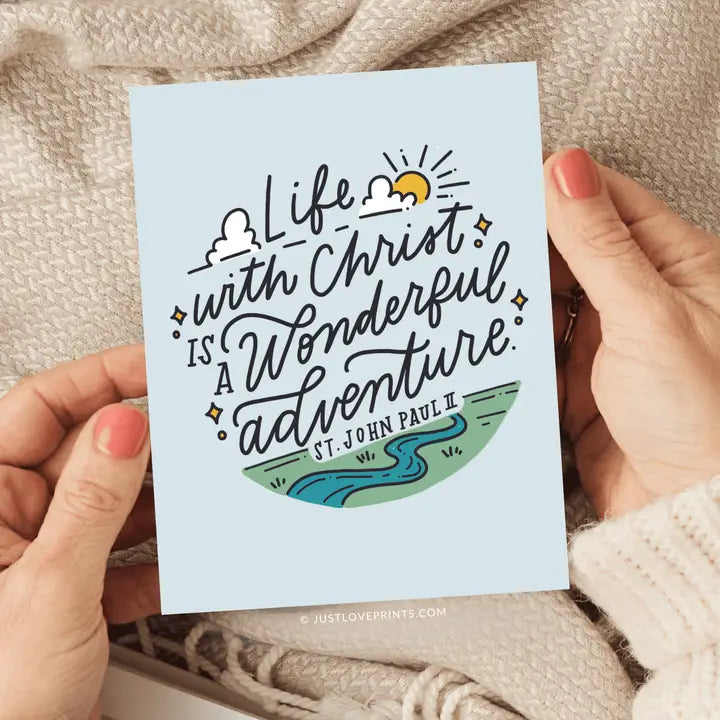 Life
with Christ
IS A Wonderful
adventure.
ST. JOHN PAUL II
© JUSTLOVEPRINTS.COM